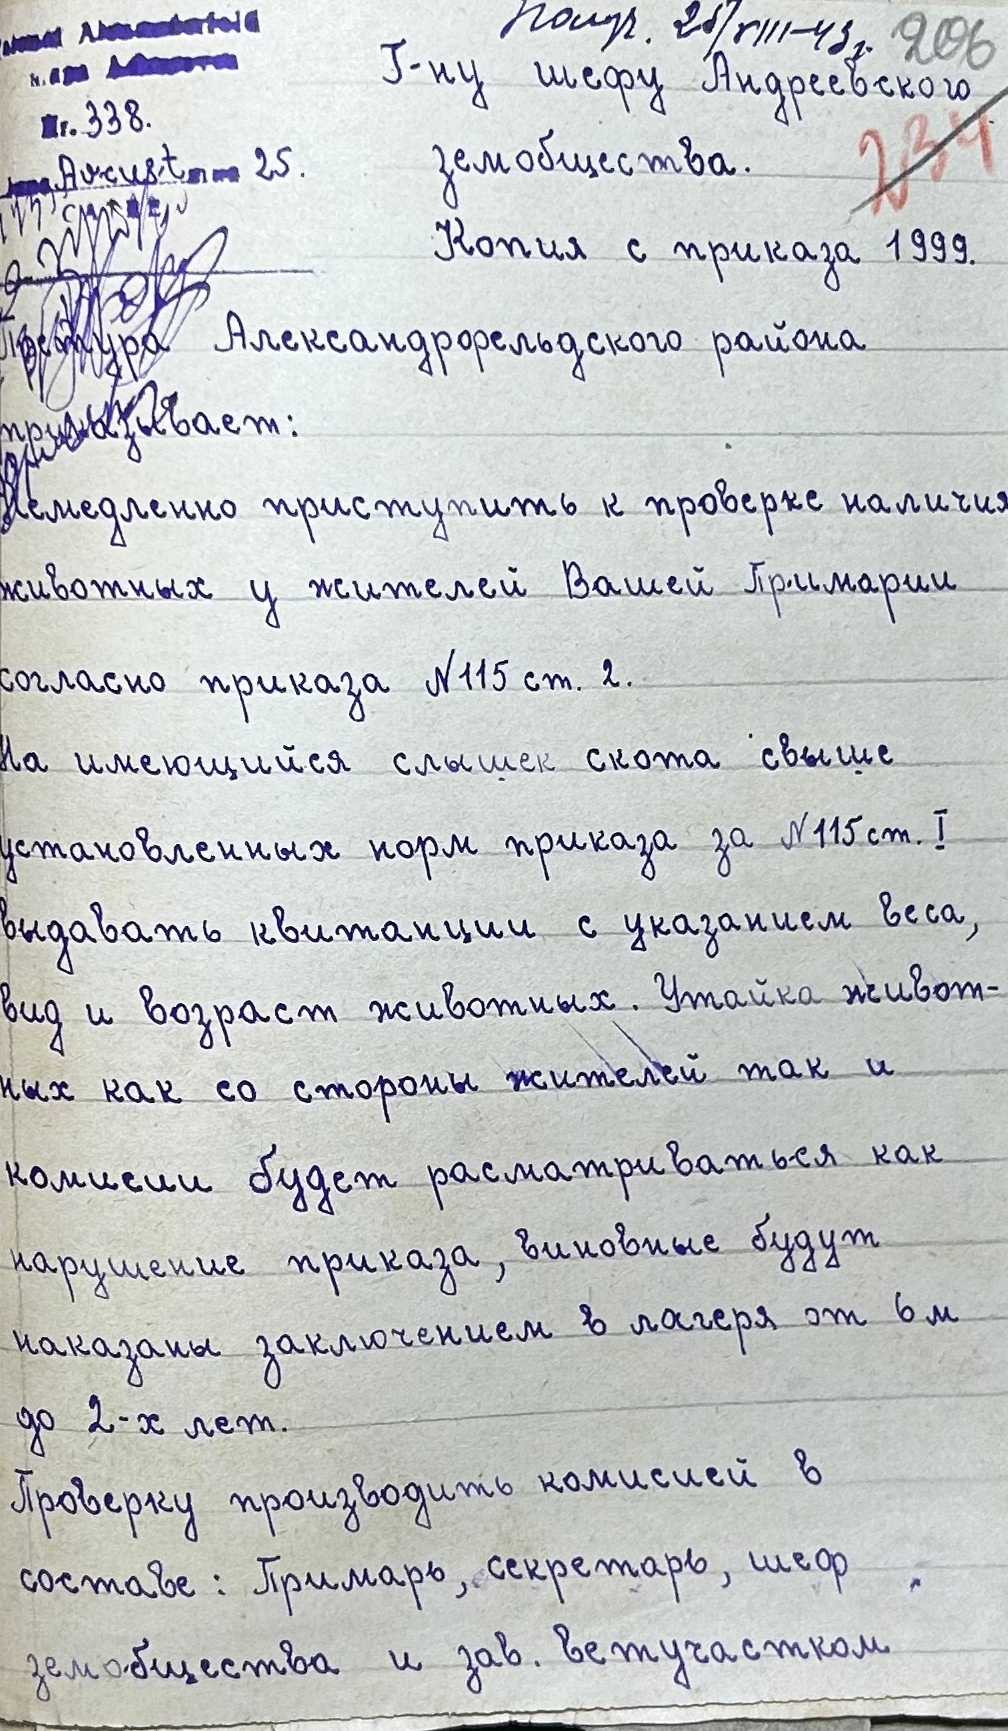 Получ. 25/VIII-43г. 206
234
Nr. 338.
August 25.
Г-ну шефу Андреевского
земобщества.
Копия с приказа 1999.
Претура Александрфельдского района
приказывает:
Немедленно приступить к проверке наличия
животных у жителей Вашей Примарии
согласно приказа N115 ст. 2.
На имеющийся слышек скота свыше
установленных норм приказа за N115 ст. I
выдавать квитанции с указанием веса,
вид и возраст животных. Утайка живот-
ных как со стороны жителей так и
комисии будет расматриваться как
нарушение приказа, виновные будут
наказаны заключением в лагеря от 6 м
до 2-х лет.
Проверку производить комисией в
составе: Примарь, секретарь, шеф
земобщества и зав. ветучастком